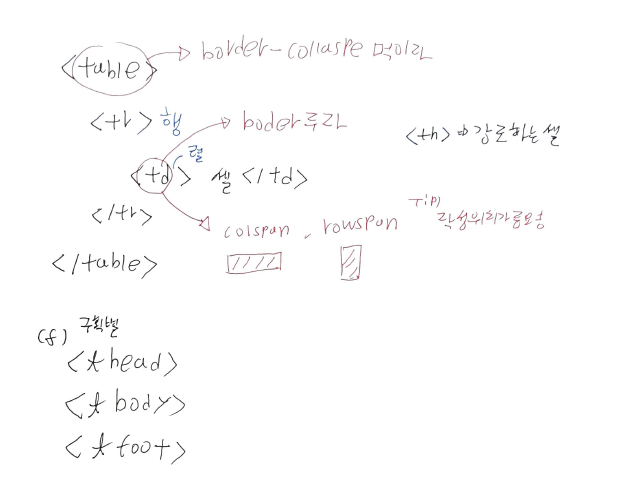 <table> border-collaspe 먹이라
<tr> 행 boder 루라 <th> 강로하는 셀
<td> 렬 셀 </td>
</tr> colspan, rowspan Tip)
</table>
(f) 구획별
<thead>
<tbody>
<tfoot>